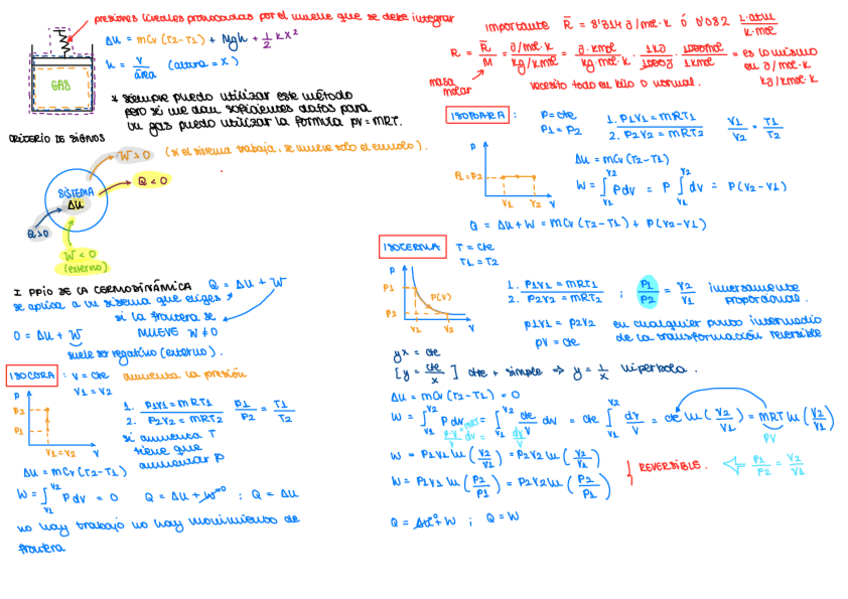 presiones lineales provocadas por el muelle que se debe integrar
ΔU = mCv (T2-T1) + Mgh + 1/2 k x²
h = V/área (altura = x)
GAS
* siempre puedo utilizar este método
pero si me dan suficientes datos para
un gas puedo utilizar la formula PV = MRT.
CRITERIO DE SIGNOS
W > 0 (si el sistema trabaja, se mueve solo el embolo).
SISTEMA
ΔU
Q < 0
Q > 0
W < 0
(externo)
I PPIO DE LA TERMODINÁMICA Q = ΔU + W
se aplica a un sistema que eliges
si la frontera se
MUEVE W ≠ 0
0 = ΔU + W
suele ser negativo (externo).
ISOCORA : V = cte aumenta la presión
V1 = V2
P
P2
P1
V1 = V2
V
1. P1V1 = MRT1
2. P2V2 = MRT2
P1/P2 = T1/T2
si aumenta T
tiene que
aumentar P
ΔU = mCv (T2-T1)
W = ∫V1^V2 P dv = 0 Q = ΔU + W=0 ; Q = ΔU
no hay trabajo no hay movimiento de
frontera
importante R̄ = 8'314 J/mol·K ó 0'082 1·atm/K·mol
R = R̄/M = J/mol·K / kg/kmol = J·kmol/kg·mol·K · 1kJ/1000J · 1000mol/1kmol = es lo mismo
en J/mol·K
kg/kmol·K
masa
molar
necesito todo en kilo o normal.
ISOBARA : P = cte
P1 = P2
1. P1V1 = MRT1
2. P2V2 = MRT2
V1/V2 = T1/T2
P
P1 = P2
V1 V2 V
ΔU = mCv (T2-T1)
W = ∫V1^V2 P dv = P ∫V1^V2 dv = P(V2-V1)
Q = ΔU + W = mCv (T2-T1) + P(V2-V1)
ISOTERMA T = cte
T1 = T2
P
P1
P2
P(V)
V1 V2 V
1. P1V1 = MRT1
2. P2V2 = MRT2
; P1/P2 = V2/V1 inversamente
proporcional.
P1V1 = P2V2 en cualquier punto intermedio
PV = cte de la transformación reversible
yx = cte
[y = cte/x] cte + simple ⇒ y = 1/x hipérbola.
ΔU = mCv (T2-T1) = 0
W = ∫V1^V2 P dv = ∫V1^V2 cte/V dv = cte ∫V1^V2 dv/V = cte ln (V2/V1) = MRT ln (V2/V1)
PV
W = P1V1 ln (V2/V1) = P2V2 ln (V2/V1)
W = P1V1 ln (P2/P1) = P2V2 ln (P2/P1)
REVERSIBLE.
P1/P2 = V2/V1
Q = ΔU=0 + W ; Q = W